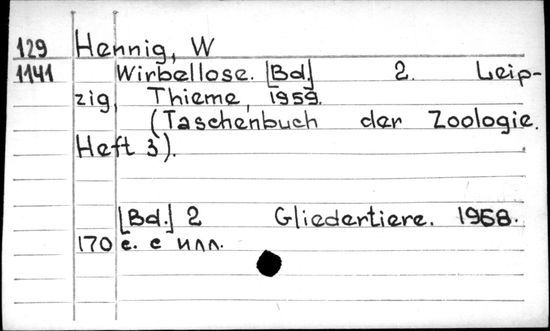 129 Hennig, W
1141 Wirbellose. [Bd.] 2. Leip-
zig, Thieme, 1959.
(Taschenbuch der Zoologie.
Heft 3).
[Bd.] 2 Gliedertiere. 1958.
170 с. с илл.